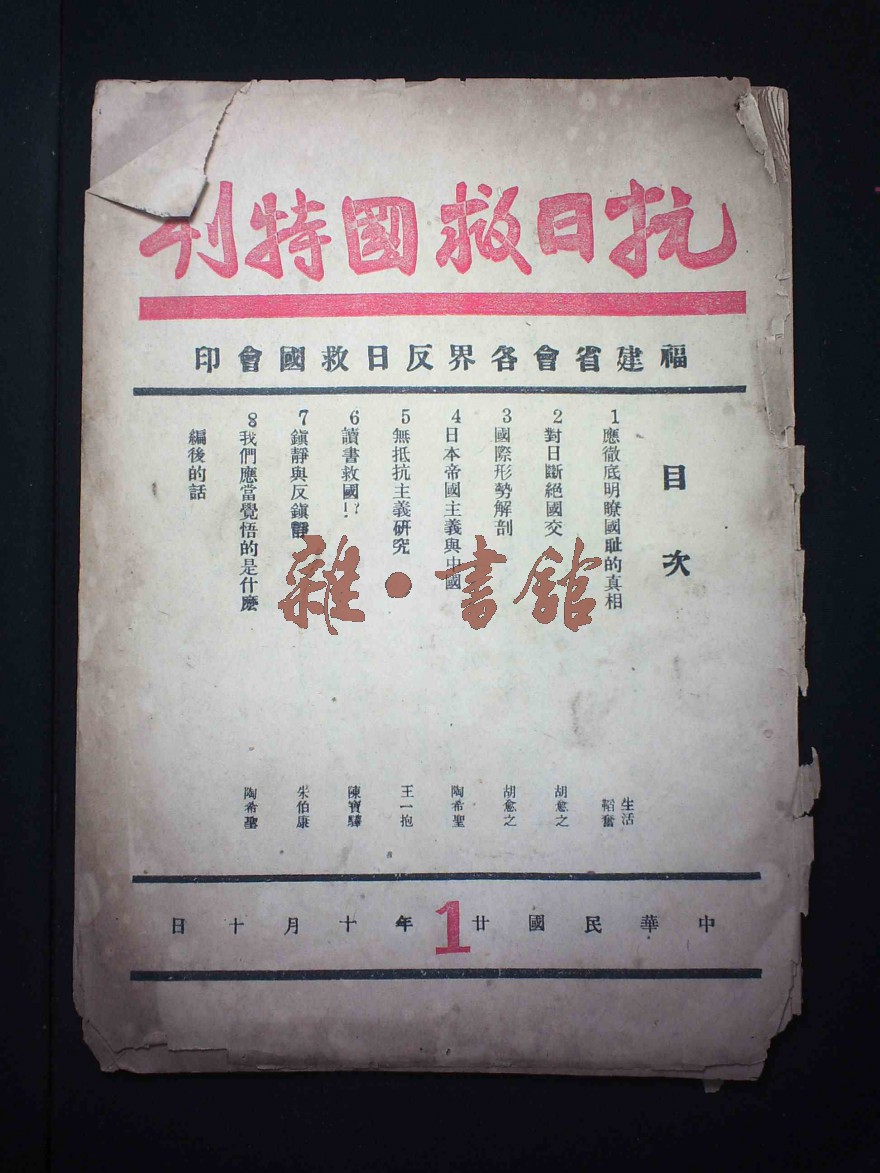 抗日救國特刊
福建省會各界反日救國會印
目次
1應徹底明瞭國耻的真相 生活 韜奮
2對日斷絕國交 胡愈之
3國際形勢解剖 胡愈之
4日本帝國主義與中國 陶希聖
5無抵抗主義研究 王一抱
6讀書救國!? 陳寶驊
7鎭靜與反鎭靜 朱伯康
8我們應當覺悟的是什麼 陶希聖
編後的話
中華民國廿年十月十日
1
雜·書館